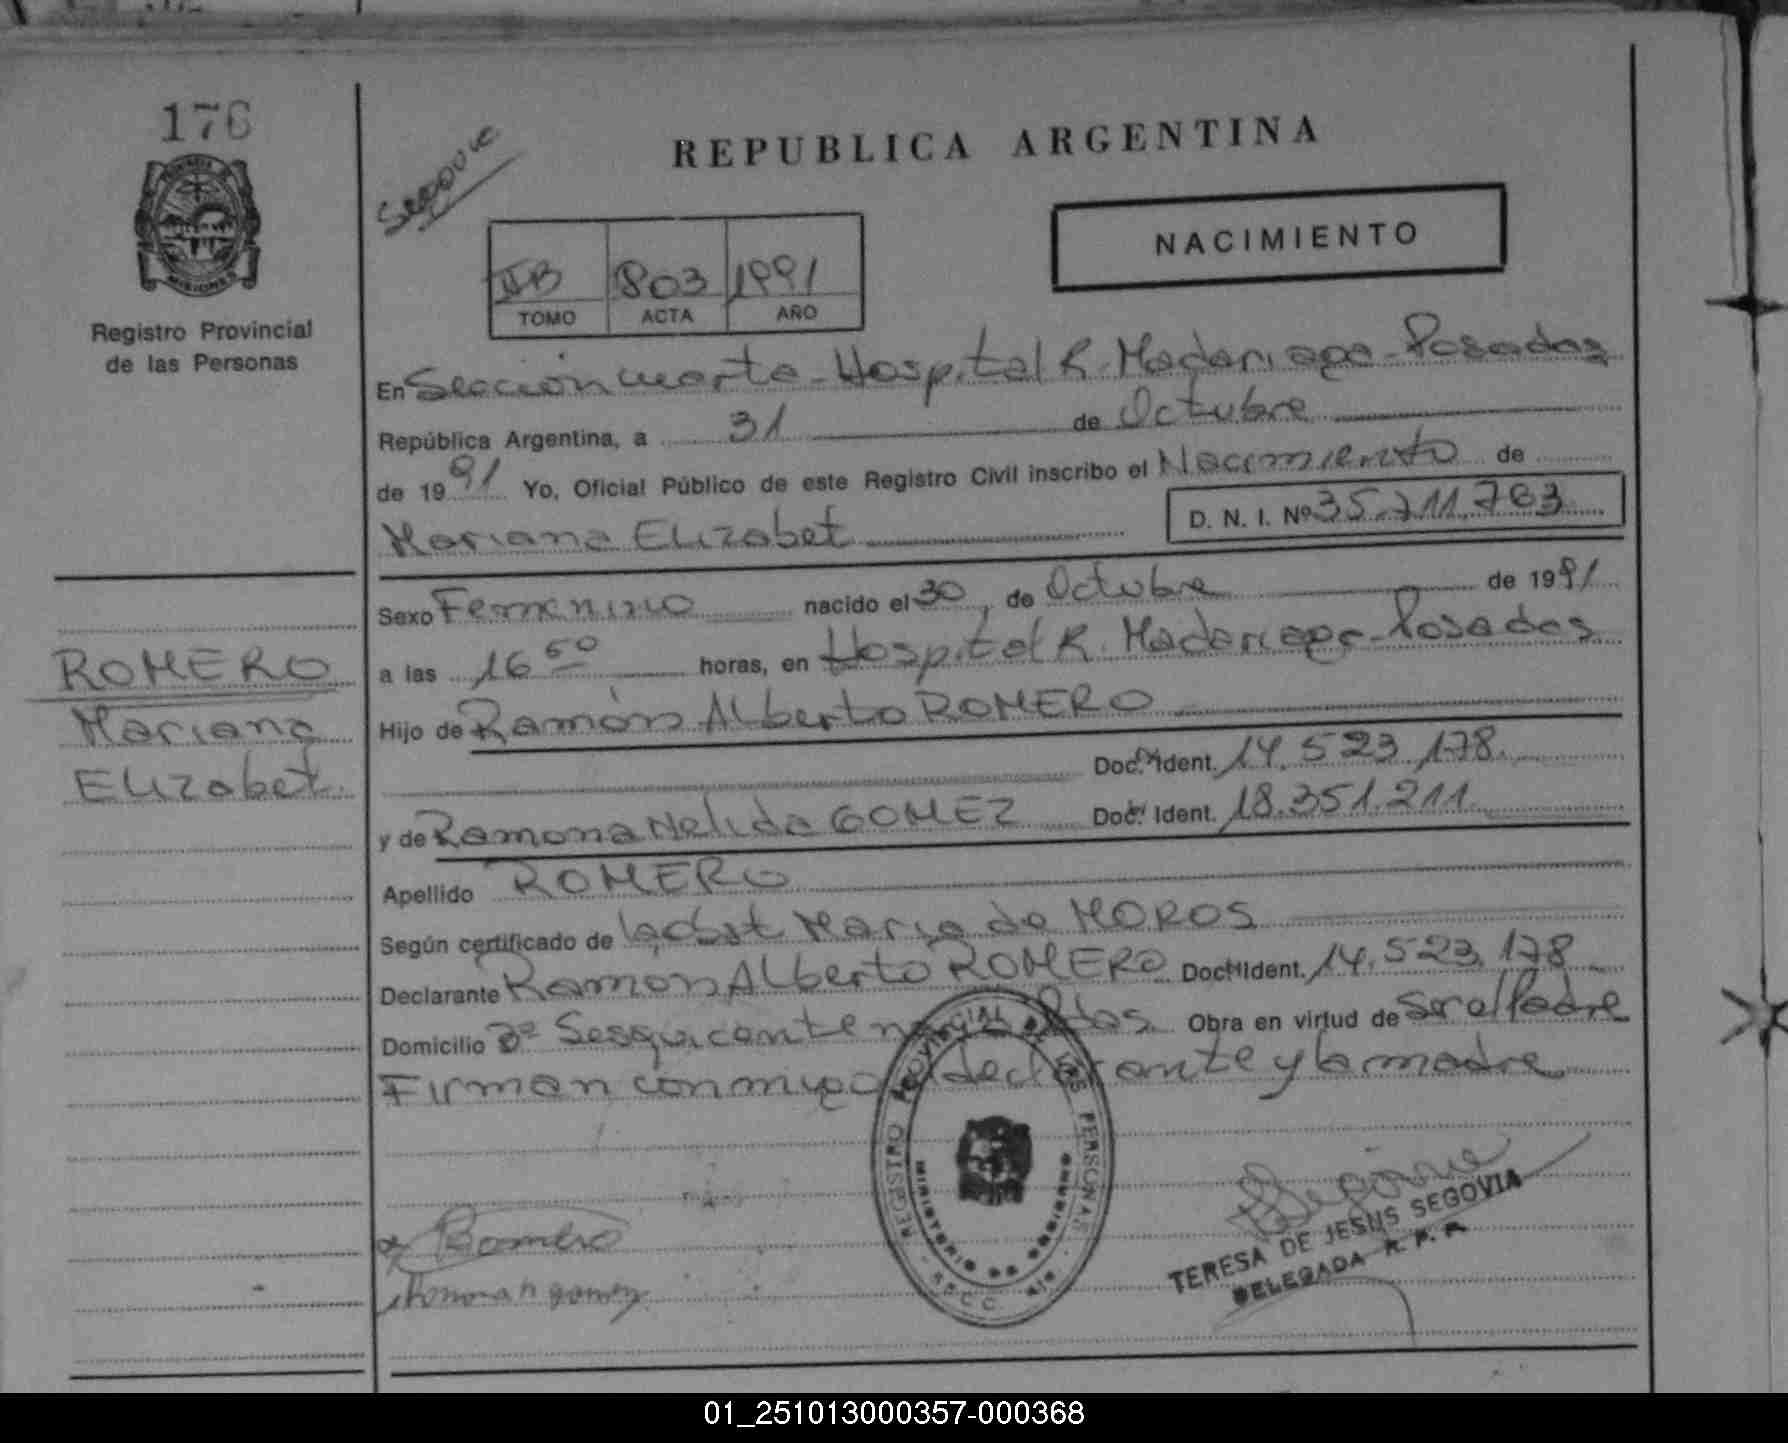 176
MISIONES
Registro Provincial
de las Personas
ROMERO
Mariana
Elizabet.
Segovia
REPUBLICA ARGENTINA
NACIMIENTO
IIB 803 1991
TOMO ACTA AÑO
En Sección cuarta - Hospital R. Madariaga - Posadas
República Argentina, a 31 de Octubre
de 1991 Yo, Oficial Público de este Registro Civil inscribo el Nacimiento de
Mariana Elizabet D. N. I. Nº 35.711.763
Sexo Femenino nacido el 30, de Octubre de 1991
a las 16 50 horas, en Hospital R. Madariaga - Posadas
Hijo de Ramón Alberto ROMERO
Doc. Ident. 14.523.178.
y de Ramona Nelida GOMEZ Doc. Ident. 18.351.211
Apellido ROMERO
Según certificado de la Obst Maria de MOROS
Declarante Ramon Alberto ROMERO Doc Ident. 14.523.178
Domicilio Sesquicentenario Pdas. Obra en virtud de Ser el Padre
Firman conmigo declarante y la madre
REGISTRO PROVINCIAL DE LAS PERSONAS
MINISTERIO DE GOBIERNO
Romero
Ramona n gomez
Segovia
TERESA DE JESUS SEGOVIA
DELEGADA R. P. P.
01_251013000357-000368